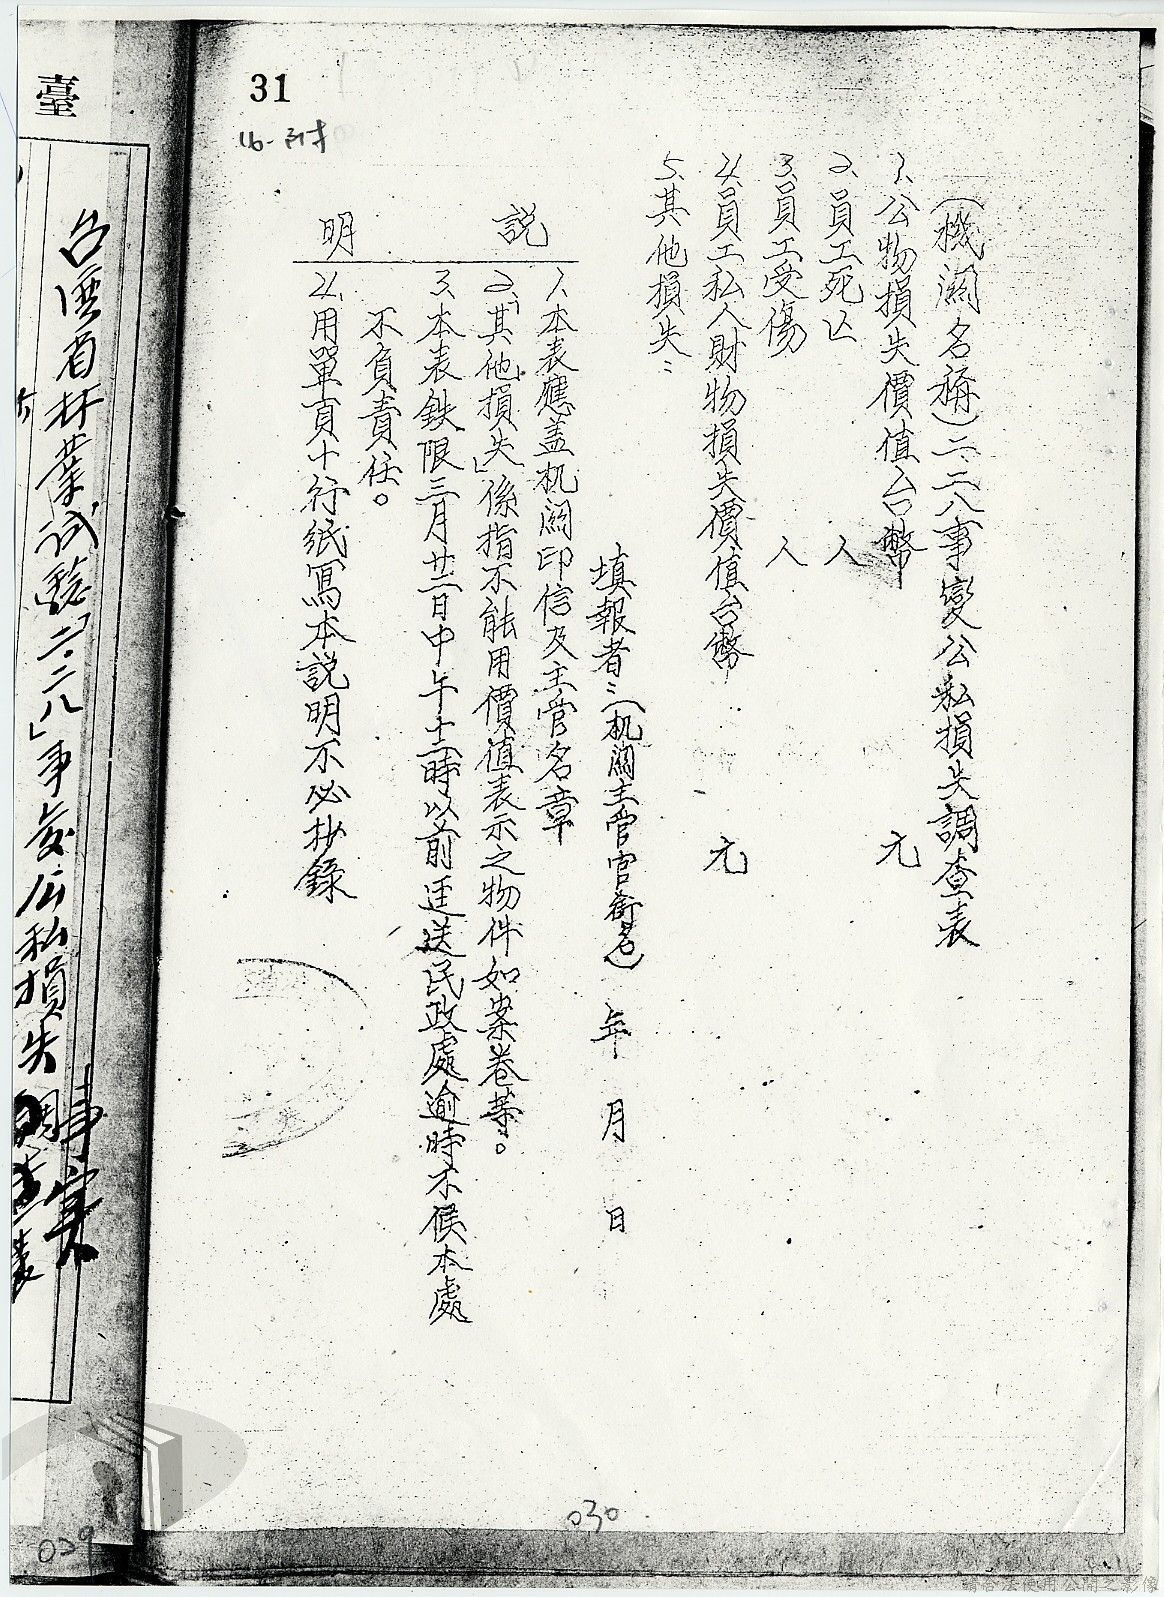 31
16-附
(機關名稱)二二八事變公私損失調查表
1、公物損失價值台幣 元
2、員工死亡 人
3、員工受傷 人
4、員工私人財物損失價值台幣 元
5、其他損失：
填報者：(机關主管官銜名) 年 月 日
説明
1、本表應盖机關印信及主管名章
2、「其他損失」係指不能用價值表示之物件如案卷等。
3、本表鉄限三月廿二日中午十二時以前逕送民政處逾時不候本處
不負責任。
4、用單頁十行紙寫本説明不必抄錄
030
臺
台灣省林業試驗「二.二八」事變公私損失
事實
調查表
029
請合法使用公開之影像